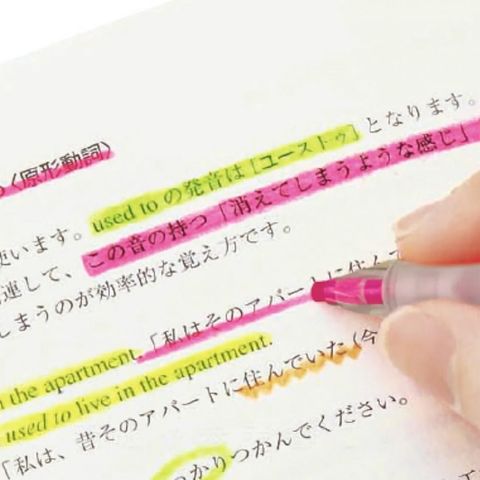 (原形動詞)
used to の発音は[ユーストゥ]となります。
使います。この音の持つ「消えてしまうような感じ」
連して、
しまうのが効率的な覚え方です。
the apartment.「私はそのアパートに住んで
used to live in the apartment.
「私は、昔そのアパートに住んでいた(今
かりつかんでください。